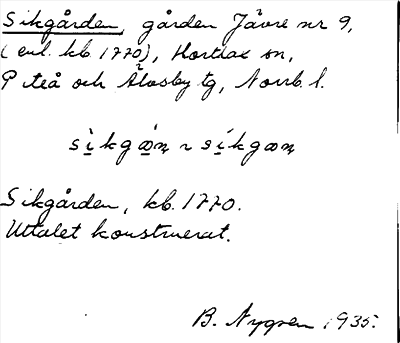 Sikgården, gården Jävre nr 9,
(enl. kb. 1770), Hortlax sn,
Piteå och Älvsby tg, Norrb. l.
Sikgården, kb. 1770.
Uttalet konstruerat.
B. Nygren 1935.